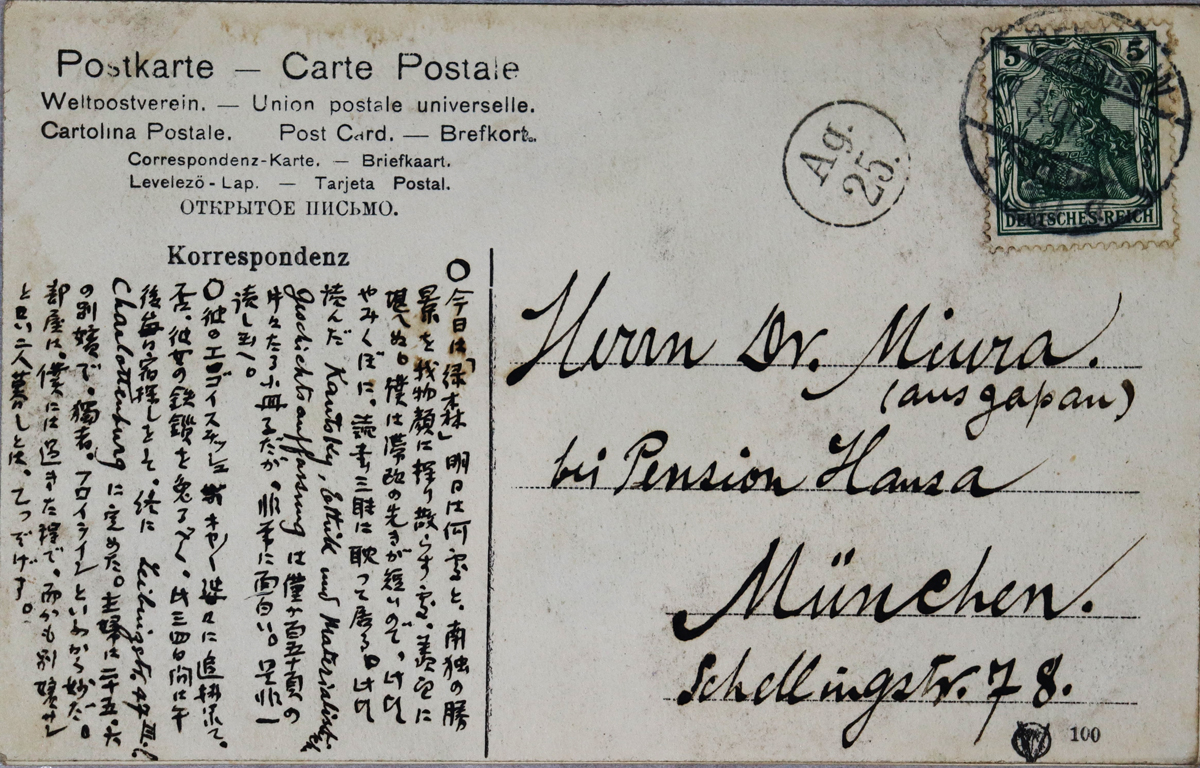 Postkarte — Carte Postale
Weltpostverein. — Union postale universelle.
Cartolina Postale. Post Card. — Brefkort.
Correspondenz-Karte. — Briefkaart.
Levelező-Lap. — Tarjeta Postal.
ОТКРЫТОЕ ПИСЬМО.
Korrespondenz
Ag.
25.
5 5
DEUTSCHES REICH
Herrn Dr. Miura.
(aus Japan)
bei Pension Hansa
München.
Schellingstr. 78.
100
○今日は「緑森」明日は何雪と、南独の勝
景を我物顔に探り散らす 羨望に
堪へぬ 僕は滞欧の先きが短いので、
やみくぼに、読書三昧に耽つて居る。
読んだ Kautsky, Ethik und Materialistische
Geschichtsauffassung は僅か百五十頁の
小冊子だが 非常に面白い。是非一
読し玉へ。
○彼のエゴイスチッシュ
否、彼女の鉄鎖を免るべく、此三四日間は午
後毎日宿探しをして、終に Leibnizstr. 47 III.
Charlottenburg に定めた。主婦は二十五、六
の別嬪で、獨者。フロイラインといふから妙だ。
部屋は、僕には過ぎた程で、而かも別嬪サン
と只二人暮しとは、乙つだけ